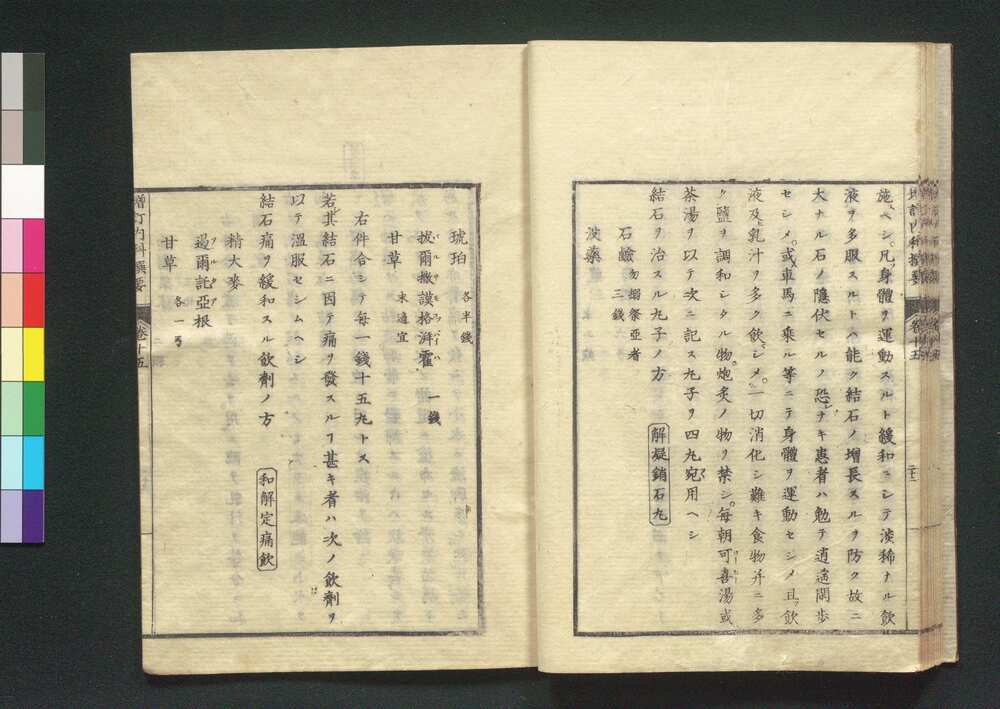 施スヘシ凡身體ヲ運動スルト緩和ニシテ淡稀ナル飲
液ヲ多服スルトハ能ク結石ノ增長スルヲ防ク故ニ
大ナル石ノ隱伏セルノ恐レナキ患者ハ勉テ逍遙閑歩
セシメ或ハ車馬ニ乗ル等ニテ身體ヲ運動セシメ且ツ飲
液及ヒ乳汁ヲ多ク飲シメ一切消化シ難キ食物幷ニ多
ク鹽ヲ調和シタル物炮炙ノ物ヲ禁シ每朝可喜湯或
茶湯ヲ以テ次ニ記ス丸子ヲ四丸宛用ヘシ
結石ヲ治スル丸子ノ方 解凝銷石丸
石鹼 勿搦祭亞者 三錢
琥珀 各半錢
拔爾撒謨格湃霍 一錢
甘草 末適宜
右件合シテ每一錢十五丸トス
若其結石ニ因テ痛ヲ發スルヿ甚キ者ハ次ノ飲劑ヲ
以テ溫服セシムヘシ
結石痛ヲ緩和スル飲劑ノ方 和解定痛飲
精大麥
過爾託亞根 各一㢧
甘草
增訂內科撰要 卷十五